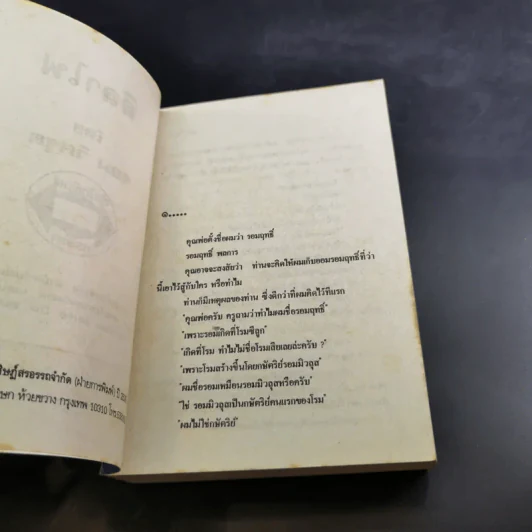 ลีลาไฟ
โดย
ษฎ์สรอรรถจำกัด (ฝ่ายการพิมพ์)
ห้วยขวาง กรุงเทพ 10310
๑.....
คุณพ่อตั้งชื่อผมว่า รอมฤทธิ์
รอมฤทธิ์ พลการ
คุณอาจจะสงสัยว่า ท่านจะคิดให้ผมเก็บออมรอมฤทธิ์ที่ว่า
นี้เอาไว้สู้กับใคร หรือทำไม
ท่านก็มีเหตุผลของท่าน ซึ่งดีกว่าที่ผมคิดไว้ทีแรก
"คุณพ่อครับ ครูถามว่าทำไมผมชื่อรอมฤทธิ์"
"เพราะรอมเกิดที่โรมซีลูก"
"เกิดที่โรม ทำไมไม่ชื่อโรมเสียเลยล่ะครับ ?"
"เพราะโรมสร้างขึ้นโดยกษัตริย์รอมมิวลุส"
"ผมชื่อรอมเหมือนรอมมิวลุสหรือครับ"
"ใช่ รอมมิวลุสเป็นกษัตริย์คนแรกของโรม"
"ผมไม่ใช่กษัตริย์"